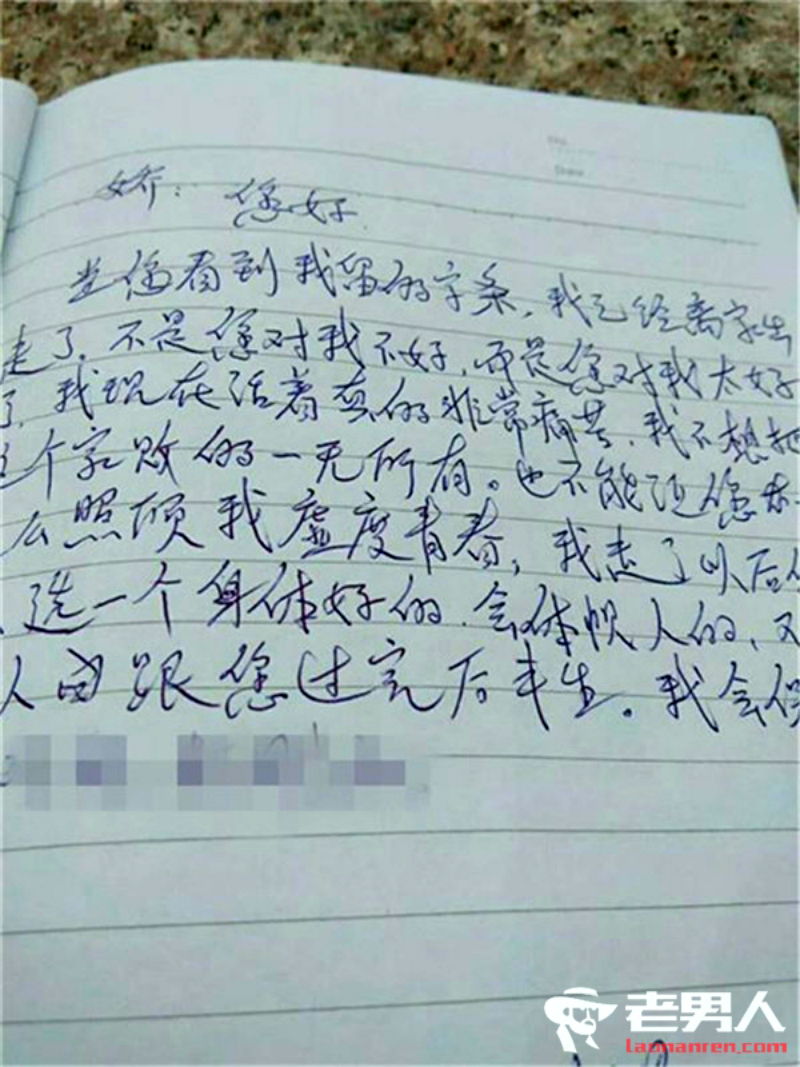 娇：您好
当您看到我留的字条，我已经离家出
走了，不是您对我不好，而是您对我太好
了，我现在活着真的非常痛苦，我不想把
这个家败的一无所有。也不能让您
么照顾我虚度青春，我走了以后
选一个身体好的，会体帖人的，又
人由跟您过完后半生。我会保
老男人
laonanren.com